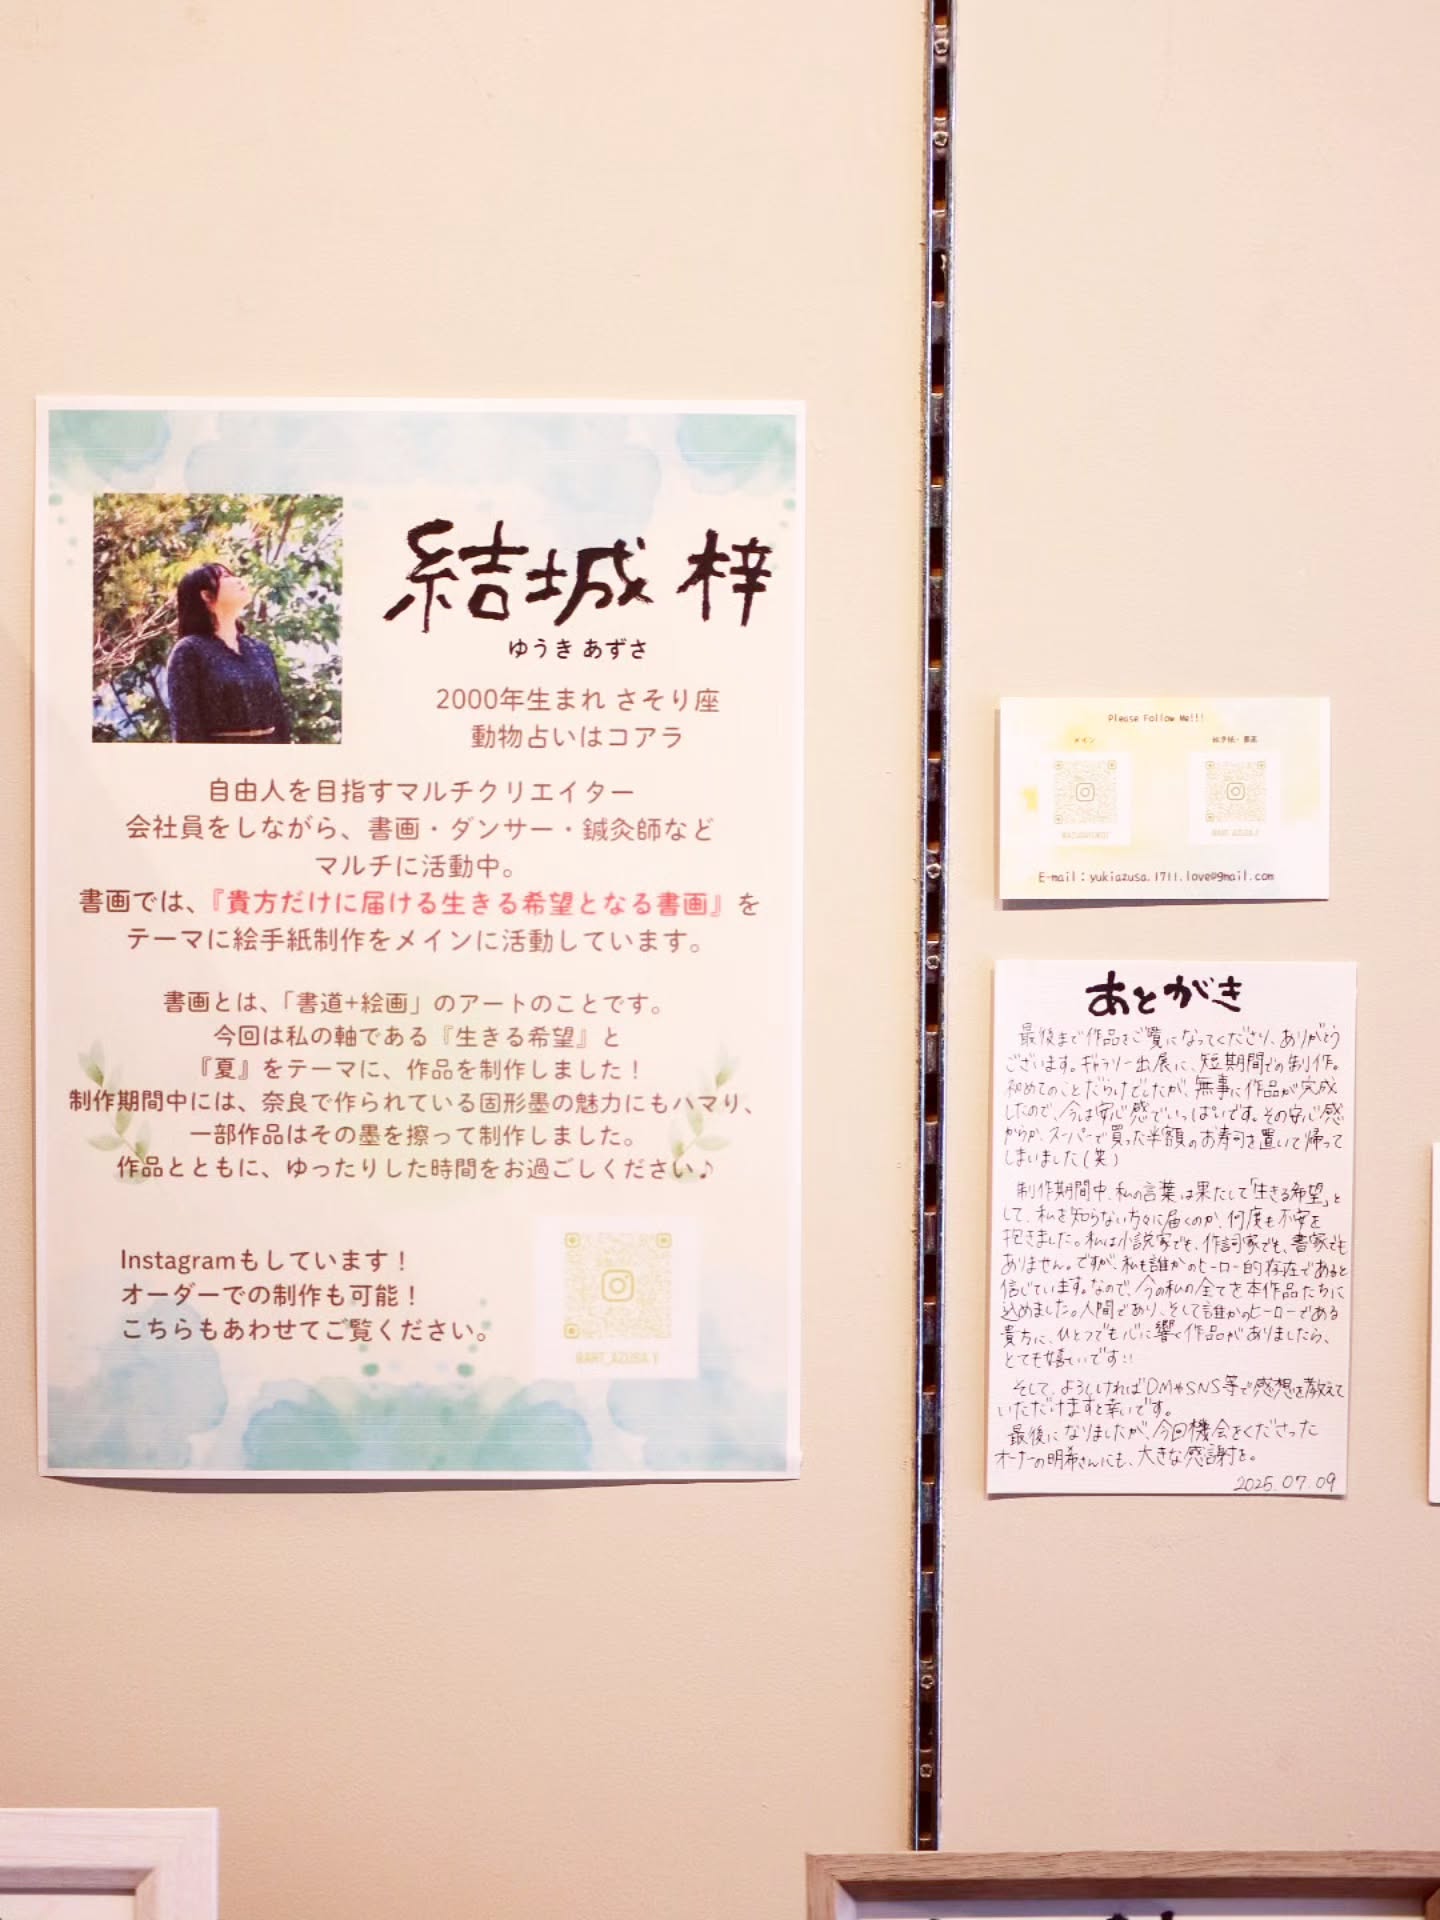 結城 梓
ゆうき あずさ
2000年生まれ さそり座
動物占いはコアラ
自由人を目指すマルチクリエイター
会社員をしながら、書画・ダンサー・鍼灸師など
マルチに活動中。
書画では、『貴方だけに届ける生きる希望となる書画』を
テーマに絵手紙制作をメインに活動しています。
書画とは、「書道+絵画」のアートのことです。
今回は私の軸である『生きる希望』と
『夏』をテーマに、作品を制作しました！
制作期間中には、奈良で作られている固形墨の魅力にもハマり、
一部作品はその墨を擦って制作しました。
作品とともに、ゆったりした時間をお過ごしください♪
Instagramもしています！
オーダーでの制作も可能！
こちらもあわせてご覧ください。
@ART_AZUSA.Y
Please Follow Me!!!
メイン
絵手紙・書画
@ART_AZUSA.Y
E-mail：yukiazusa.1711.love@gmail.com
あとがき
最後まで作品をご覧になってくださり、ありがとう
ございます。ギャラリー出展に、短期間での制作。
初めてのことだらけでしたが、無事に作品が完成
したので、今は安心感でいっぱいです。その安心感
からか、スーパーで買った半額のお寿司を置いて帰って
しまいました(笑)
制作期間中、私の言葉は果たして「生きる希望」と
して、私を知らない方々に届くのか、何度も不安を
抱きました。私は小説家でも、作詞家でも、書家でも
ありません。ですが、私も誰かのヒーロー的存在であると
信じています。なので、今の私の全てを本作品たちに
込めました。人間であり、そして誰かのヒーローである
貴方に、ひとつでも心に響く作品がありましたら、
とても嬉しいです!!
そして、よろしければDMやSNS等で感想を教えて
いただけますと幸いです。
最後になりましたが、今回機会をくださった
オーナーの明希さんにも、大きな感謝を。
2025.07.09